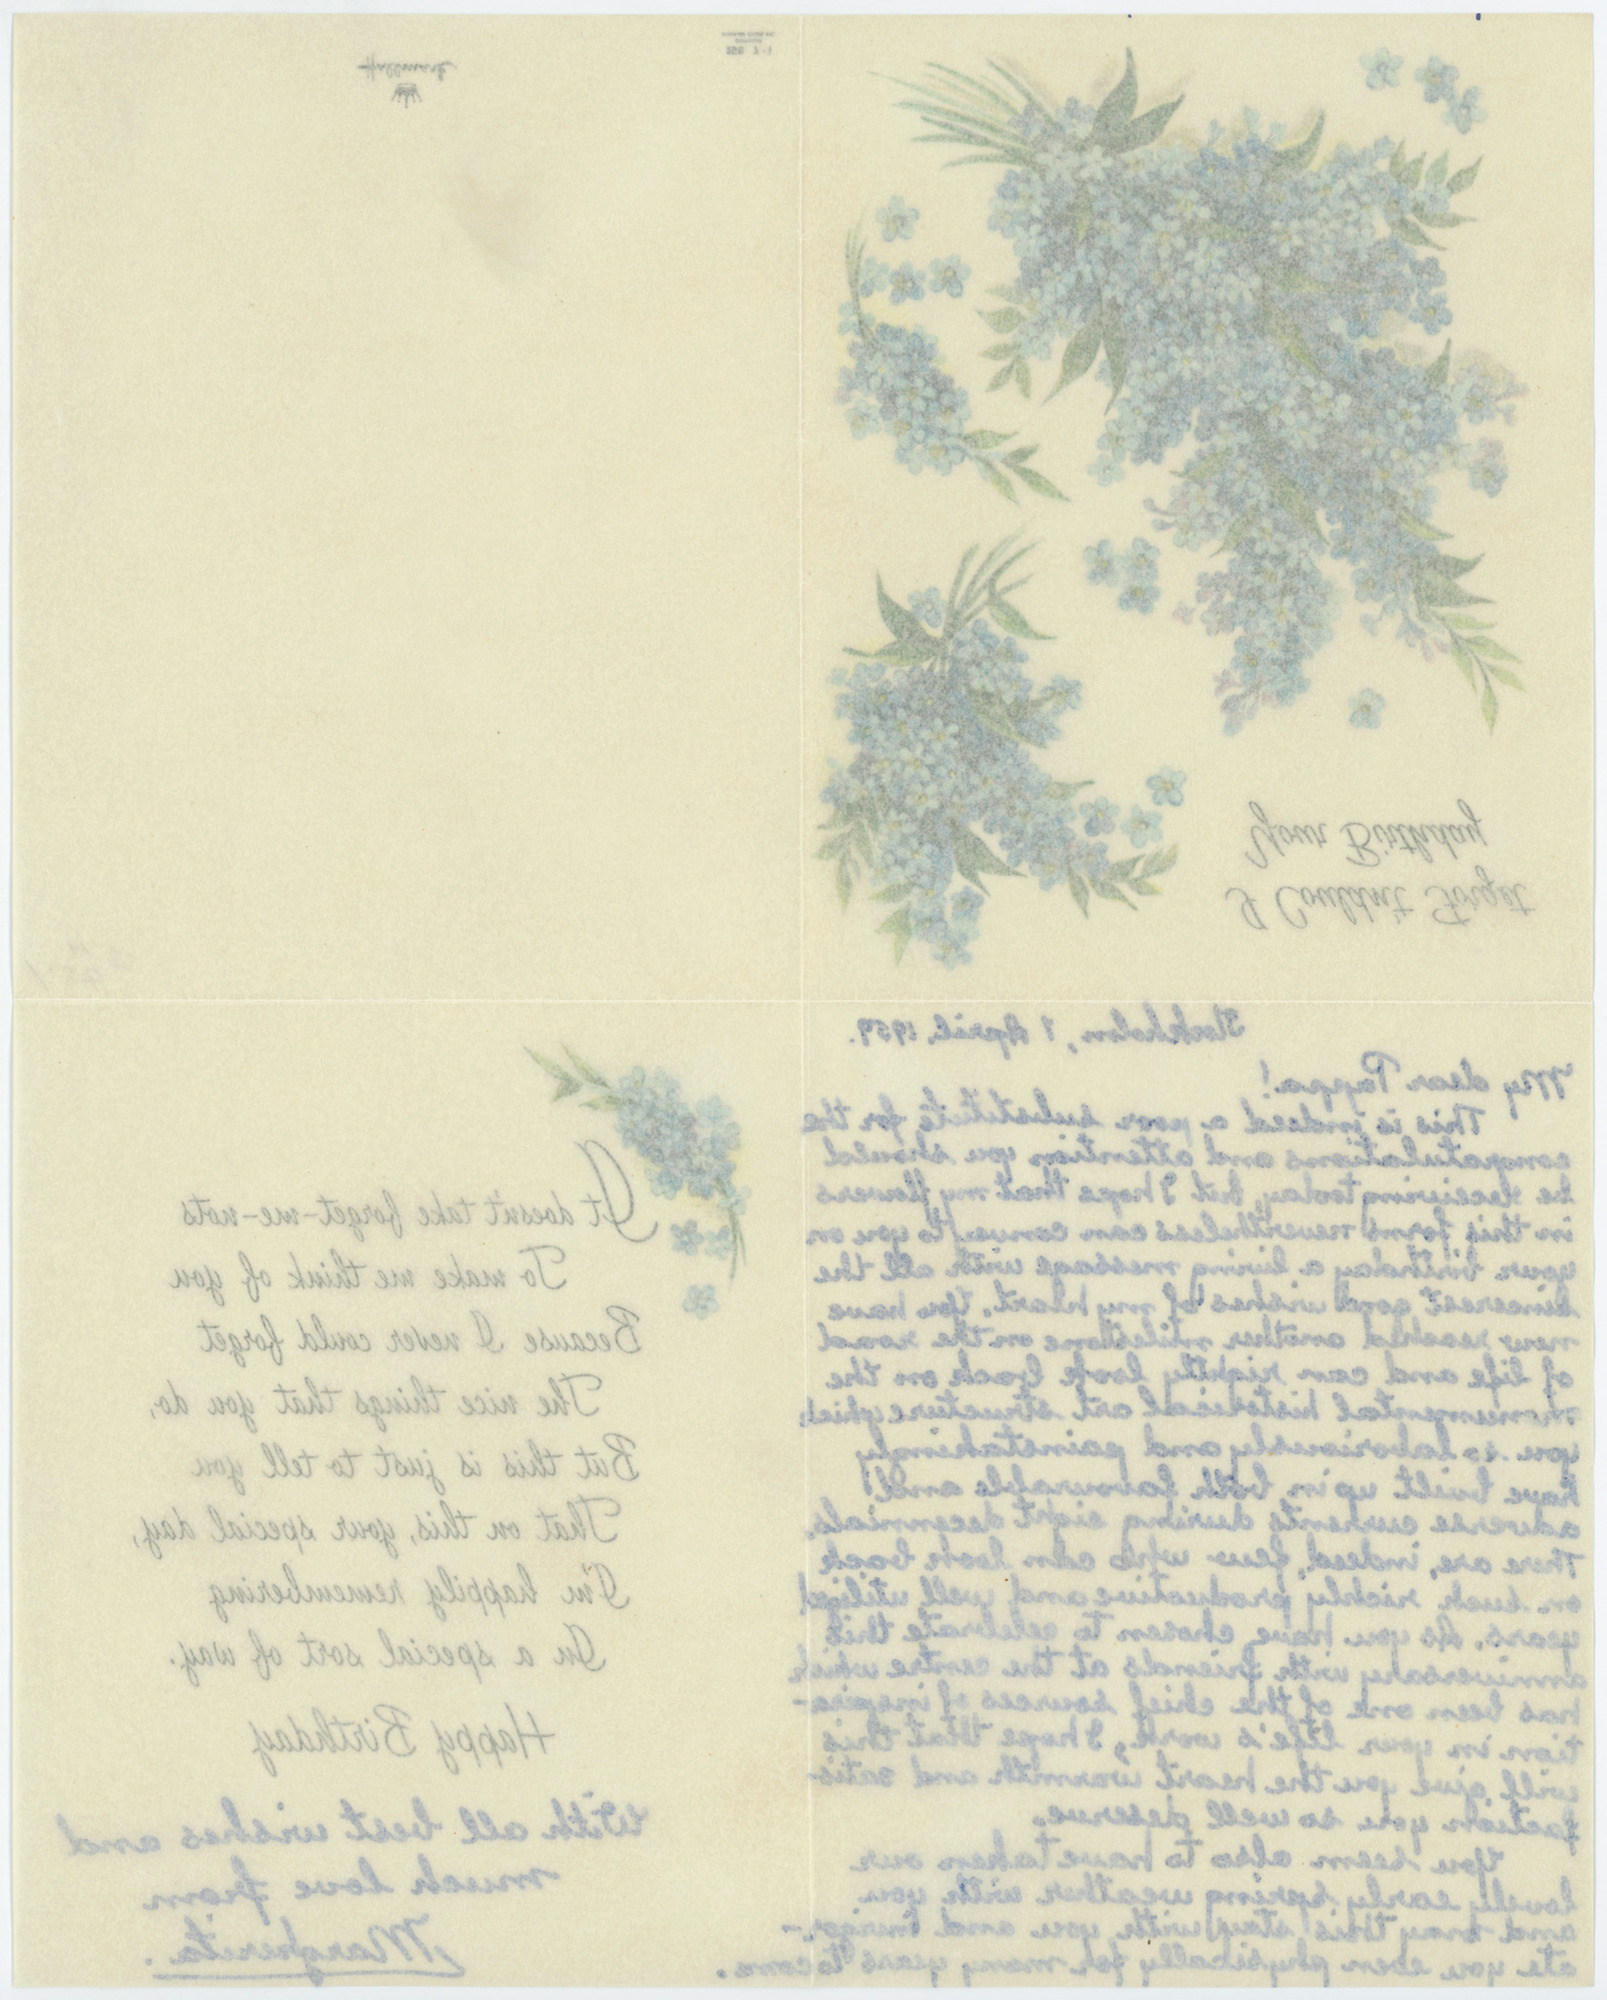 Hallmark
I Couldn't Forget
Your Birthday
Stockholm, 1 April, 1959.
My dear Pappa!
This is indeed a poor substitute for the
congratulations and attention you should
be receiving today, but I hope that my flowers
in this form nevertheless can convey to you on
your birthday a living message with all the
sincerest good wishes of my heart. You have
now reached another milestone on the road
of life and can rightly look back on the
monumental historical art structure which
you so laboriously and painstakingly
have built up in both favourable and
adverse currents during eight decennials.
There are, indeed, few who can look back
on such richly productive and well utilized
years. As you have chosen to celebrate this
anniversary with friends at the centre which
has been one of the chief sources of inspira-
tion in your life's work, I hope that this
will give you the heart warmth and satis-
faction you so well deserve.
You seem also to have taken our
lovely early spring weather with you
and may this stay with you and invigor-
ate you even physically for many years to come.
It doesn't take forget-me-nots
To make me think of you
Because I never could forget
The nice things that you do,
But this is just to tell you
That on this, your special day,
I'm happily remembering
In a special sort of way.
Happy Birthday
With all best wishes and
much love from
Margherita.